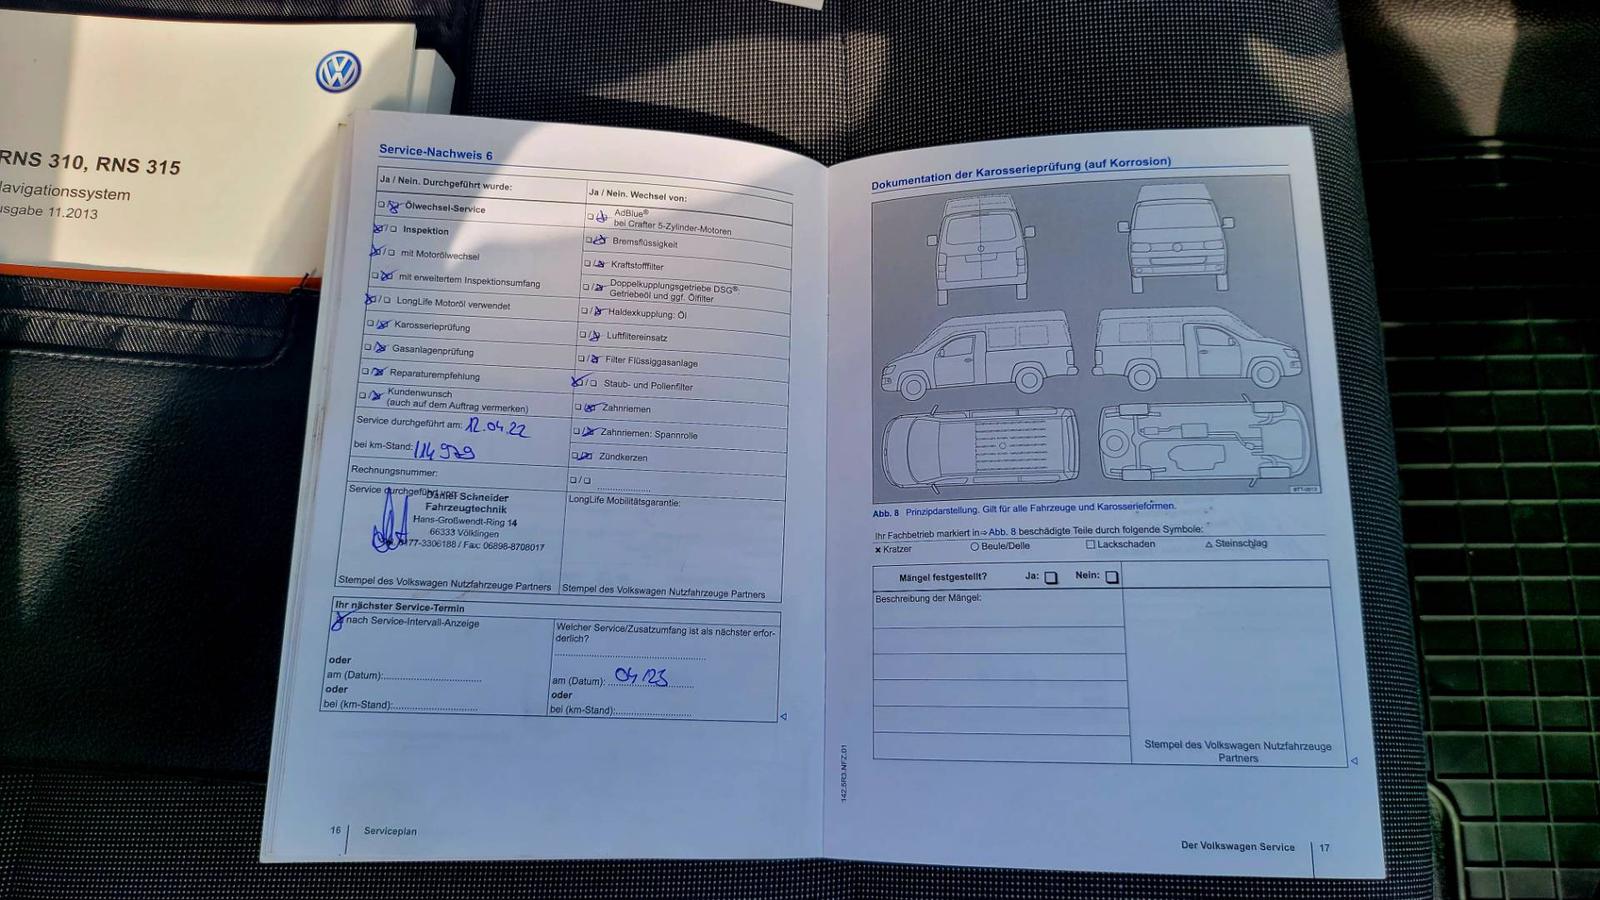 RNS 310, RNS 315
Navigationssystem
Ausgabe 11.2013
Service-Nachweis 6
Ja / Nein. Durchgeführt wurde:
Ölwechsel-Service
Inspektion
mit Motorölwechsel
mit erweitertem Inspektionsumfang
LongLife Motoröl verwendet
Karosserieprüfung
Gasanlagenprüfung
Reparaturempfehlung
Kundenwunsch
(auch auf dem Auftrag vermerken)
Service durchgeführt am: 12.04.22
bei km-Stand: 114 979
Rechnungsnummer:
Service durchgeführt von:
Daniel Schneider
Fahrzeugtechnik
Hans-Großwendt-Ring 14
66333 Völklingen
0177-3306188 / Fax: 06898-8708017
Stempel des Volkswagen Nutzfahrzeuge Partners
Ja / Nein. Wechsel von:
AdBlue®
bei Crafter 5-Zylinder-Motoren
Bremsflüssigkeit
Kraftstofffilter
Doppelkupplungsgetriebe DSG®:
Getriebeöl und ggf. Ölfilter
Haldexkupplung: Öl
Luftfiltereinsatz
Filter Flüssiggasanlage
Staub- und Pollenfilter
Zahnriemen
Zahnriemen: Spannrolle
Zündkerzen
LongLife Mobilitätsgarantie:
Stempel des Volkswagen Nutzfahrzeuge Partners
Ihr nächster Service-Termin
nach Service-Intervall-Anzeige
oder
am (Datum):
oder
bei (km-Stand):
Welcher Service/Zusatzumfang ist als nächster erfor-
derlich?
am (Datum): 04/23
oder
bei (km-Stand):
16 Serviceplan
Dokumentation der Karosserieprüfung (auf Korrosion)
Abb. 8 Prinzipdarstellung. Gilt für alle Fahrzeuge und Karosserieformen.
Ihr Fachbetrieb markiert in⇒Abb. 8 beschädigte Teile durch folgende Symbole:
× Kratzer ○ Beule/Delle □ Lackschaden △ Steinschlag
Mängel festgestellt? Ja: □ Nein: □
Beschreibung der Mängel:
Stempel des Volkswagen Nutzfahrzeuge
Partners
142.5R3.NFZ.01
Der Volkswagen Service 17